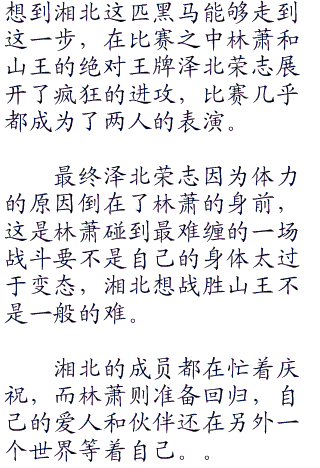 想到湘北这匹黑马能够走到
这一步，在比赛之中林萧和
山王的绝对王牌泽北荣志展
开了疯狂的进攻，比赛几乎
都成为了两人的表演。
最终泽北荣志因为体力
的原因倒在了林萧的身前，
这是林萧碰到最难缠的一场
战斗要不是自己的身体太过
于变态，湘北想战胜山王不
是一般的难。
湘北的成员都在忙着庆
祝，而林萧则准备回归，自
己的爱人和伙伴还在另外一
个世界等着自己。。